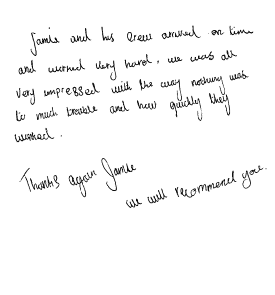 Jamie and his crew arrived on time
and worked very hard, we was all
very impressed with the way nothing was
to much trouble and how quickly they
worked.
Thanks again Jamie
we will recommend you.